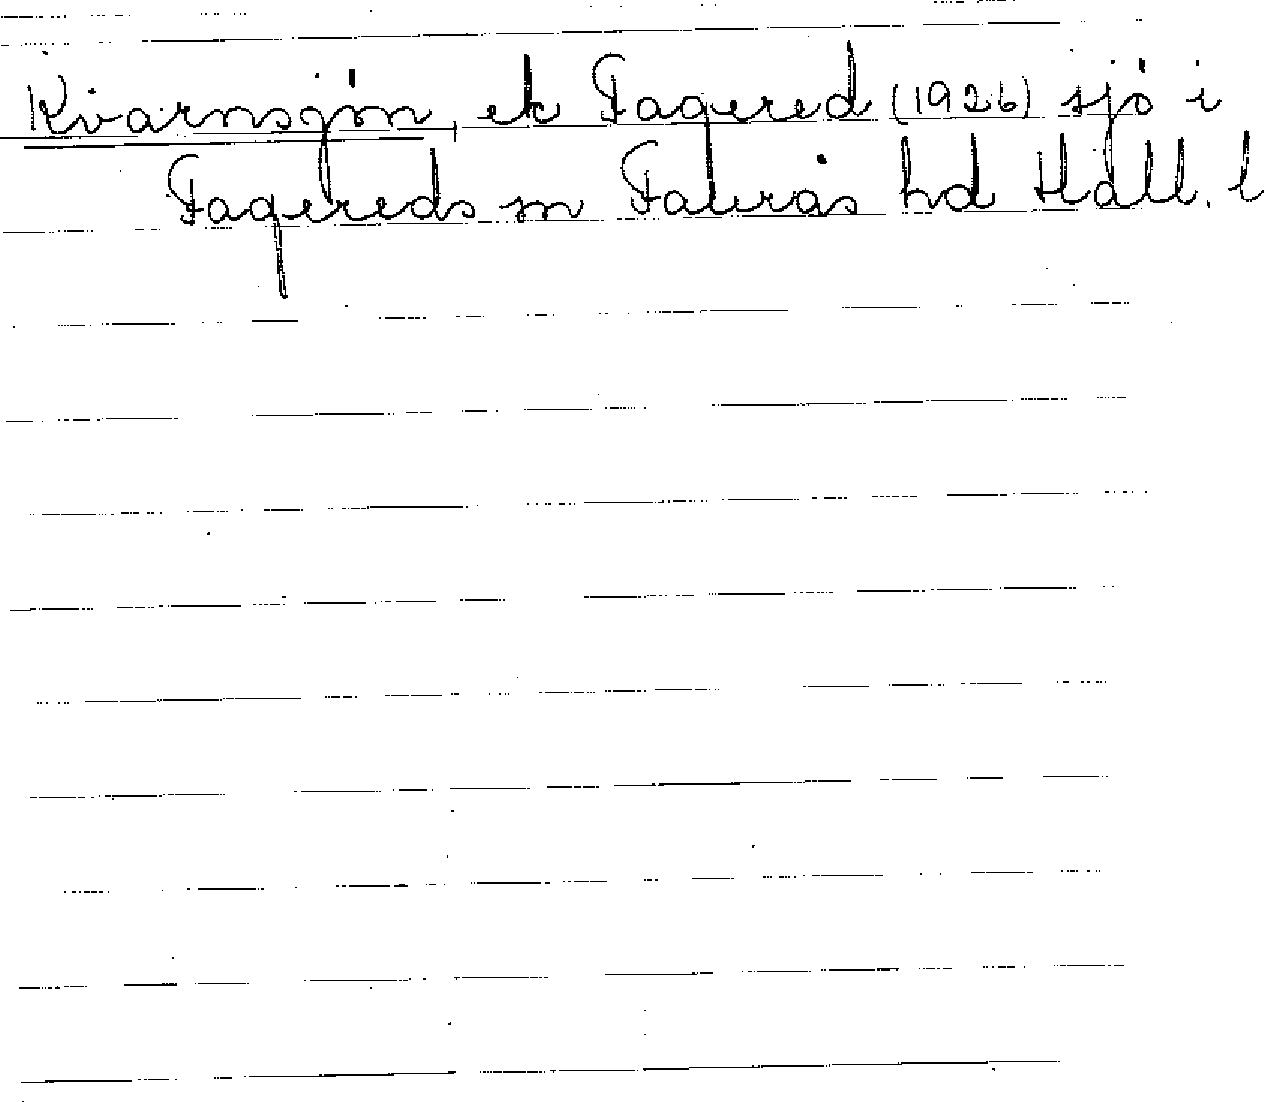 Kvarnsjön, ek Fagered (1926) sjö i
Fagereds sn Faurås hd Hall. l